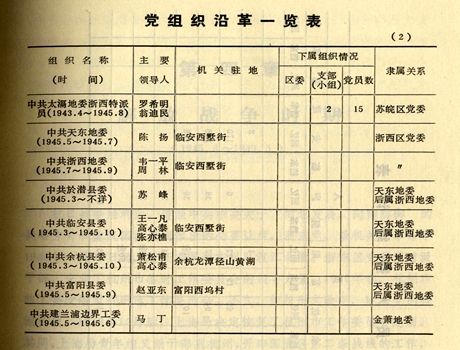 党组织沿革一览表
(2)
组织名称 主要 机关驻地 下属组织情况 隶属关系
(时间) 领导人 区委 支部(小组) 党员数
中共太滆地委浙西特派 罗希明 2 15 苏皖区党委
员(1943.4～1945.8) 翁迪民
中共天东地委 陈扬 临安西墅街 浙西区党委
(1945.5～1945.7)
中共浙西地委 韦一平 临安西墅街 〃
(1945.7～1945.9) 周林
中共於潜县委 苏峰 天东地委
(1945.3～不详) 后属浙西地委
中共临安县委 王一凡 临安西墅街 天东地委
(1945.3～1945.10) 高心泰 后属浙西地委
张亦樵
中共余杭县委 萧松甫 余杭龙潭径山黄湖 天东地委
(1945.3～1945.10) 高心泰 后属浙西地委
中共富阳县委 赵亚东 富阳西坞村 天东地委
(1945.5～1945.9) 后属浙西地委
中共建兰浦边界工委 马丁 金萧地委
(1945.5～1945.6)